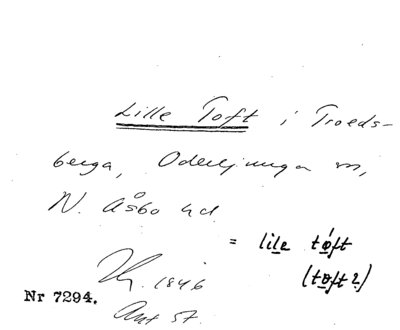 Lille Toft i Troeds-
berga, Oderljunga sn,
N. Åsbo hd.
= lile tøft
(tøft?)
1846
Nr 7294.
Ant. 57.